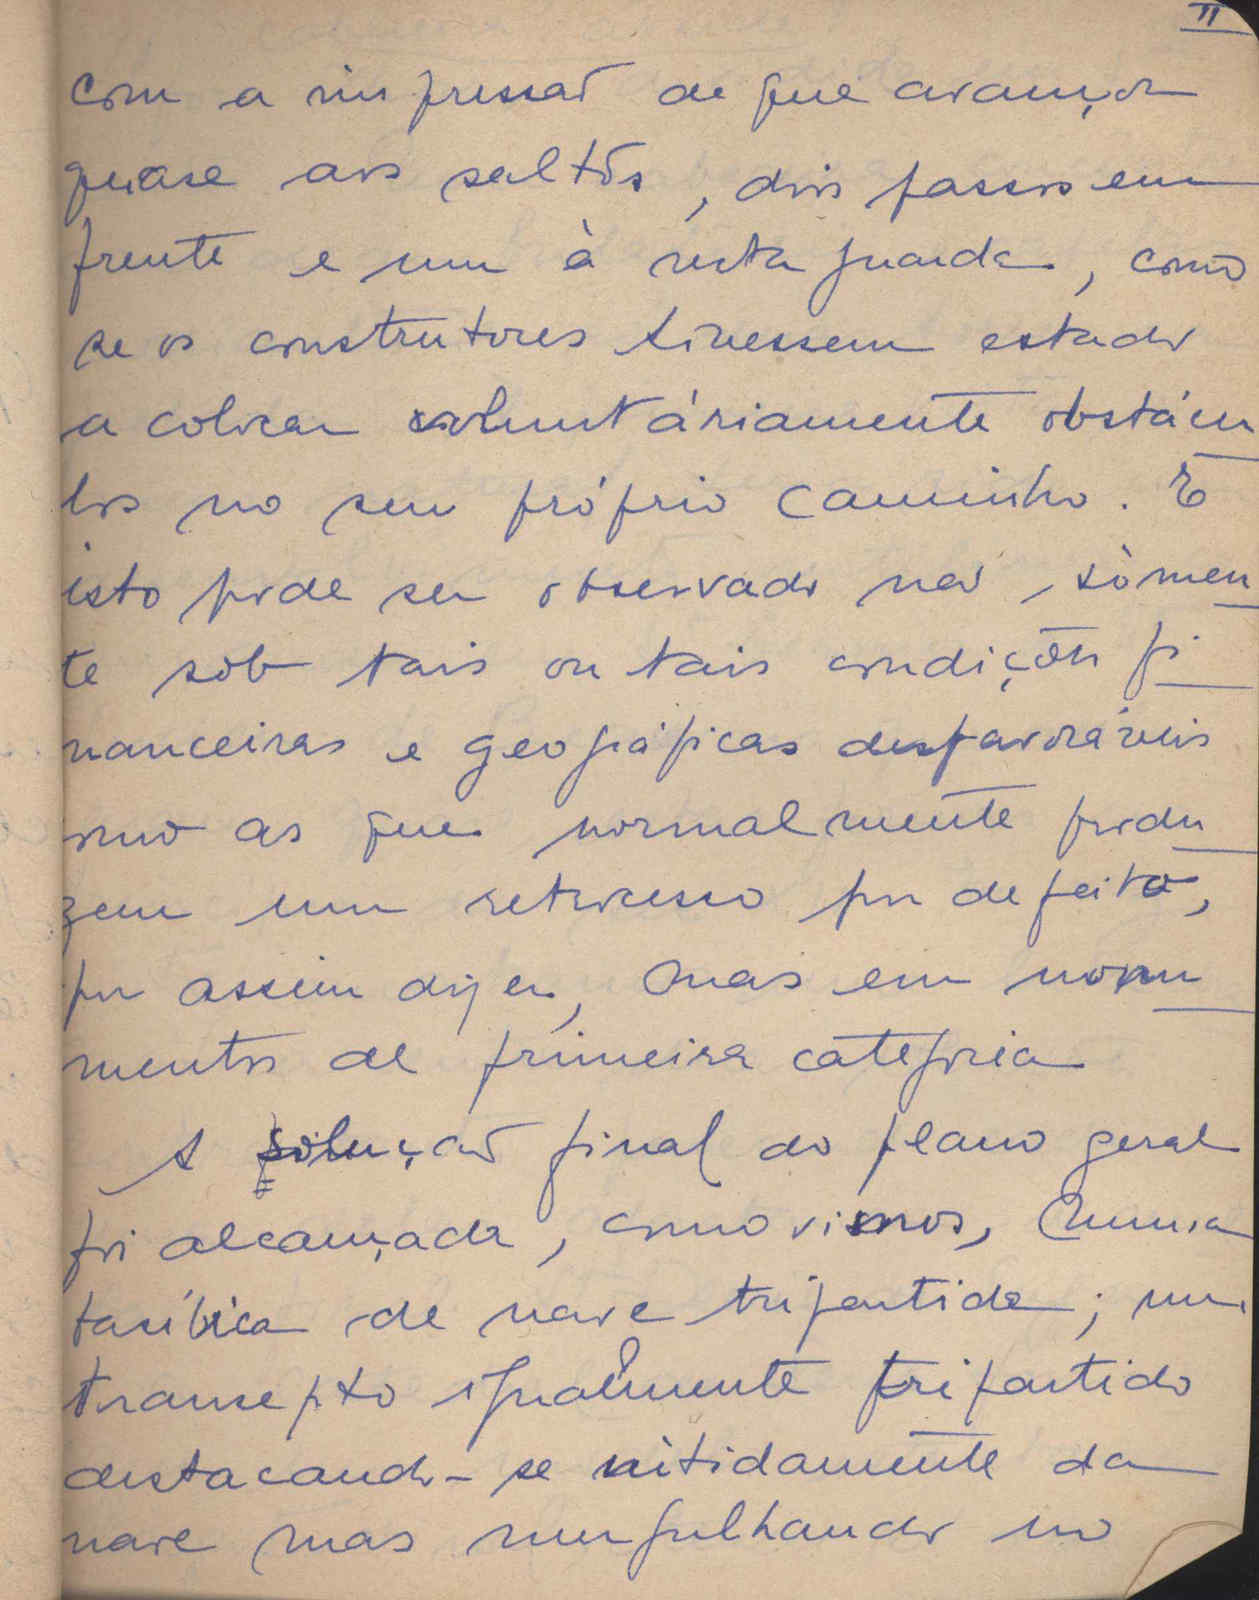 11
com a impressão de que avançou
quase aos saltos, dois passos em
frente e um à rectaguarda, como
se os construtores tivessem estado
a colocar voluntáriamente obstácu
los no seu próprio caminho. E
isto pode ser observado não sòmen
te sob tais ou tais condições fi
nanceiras e geográficas desfavoráveis
como as que normalmente produ
zem um retrocesso por defeito,
por assim dizer, mas em monu
mentos de primeira categoria
A solução final do plano geral
foi alcançada, como vimos, numa
basílica de nave tripartida; um
transepto igualmente tripartido
destacando-se nitidamente da
nave mas mergulhando no